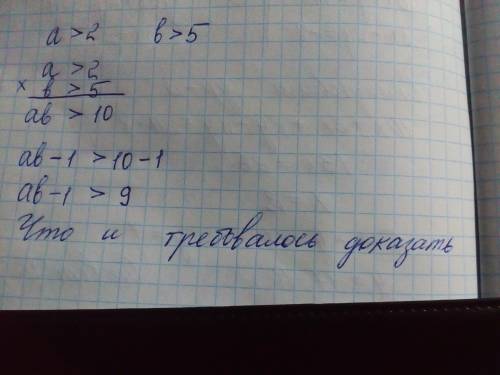 a > 2 b > 5
a > 2
× b > 5
ab > 10
ab - 1 > 10 - 1
ab - 1 > 9
Что и требовалось доказать